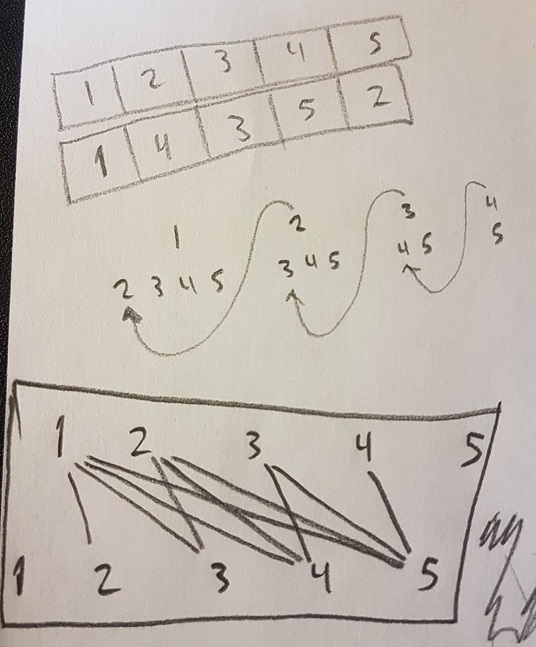 1 2 3 4 5
1 4 3 5 2
1 2 3 4
2 3 4 5 3 4 5 4 5 5
1 2 3 4 5
1 2 3 4 5